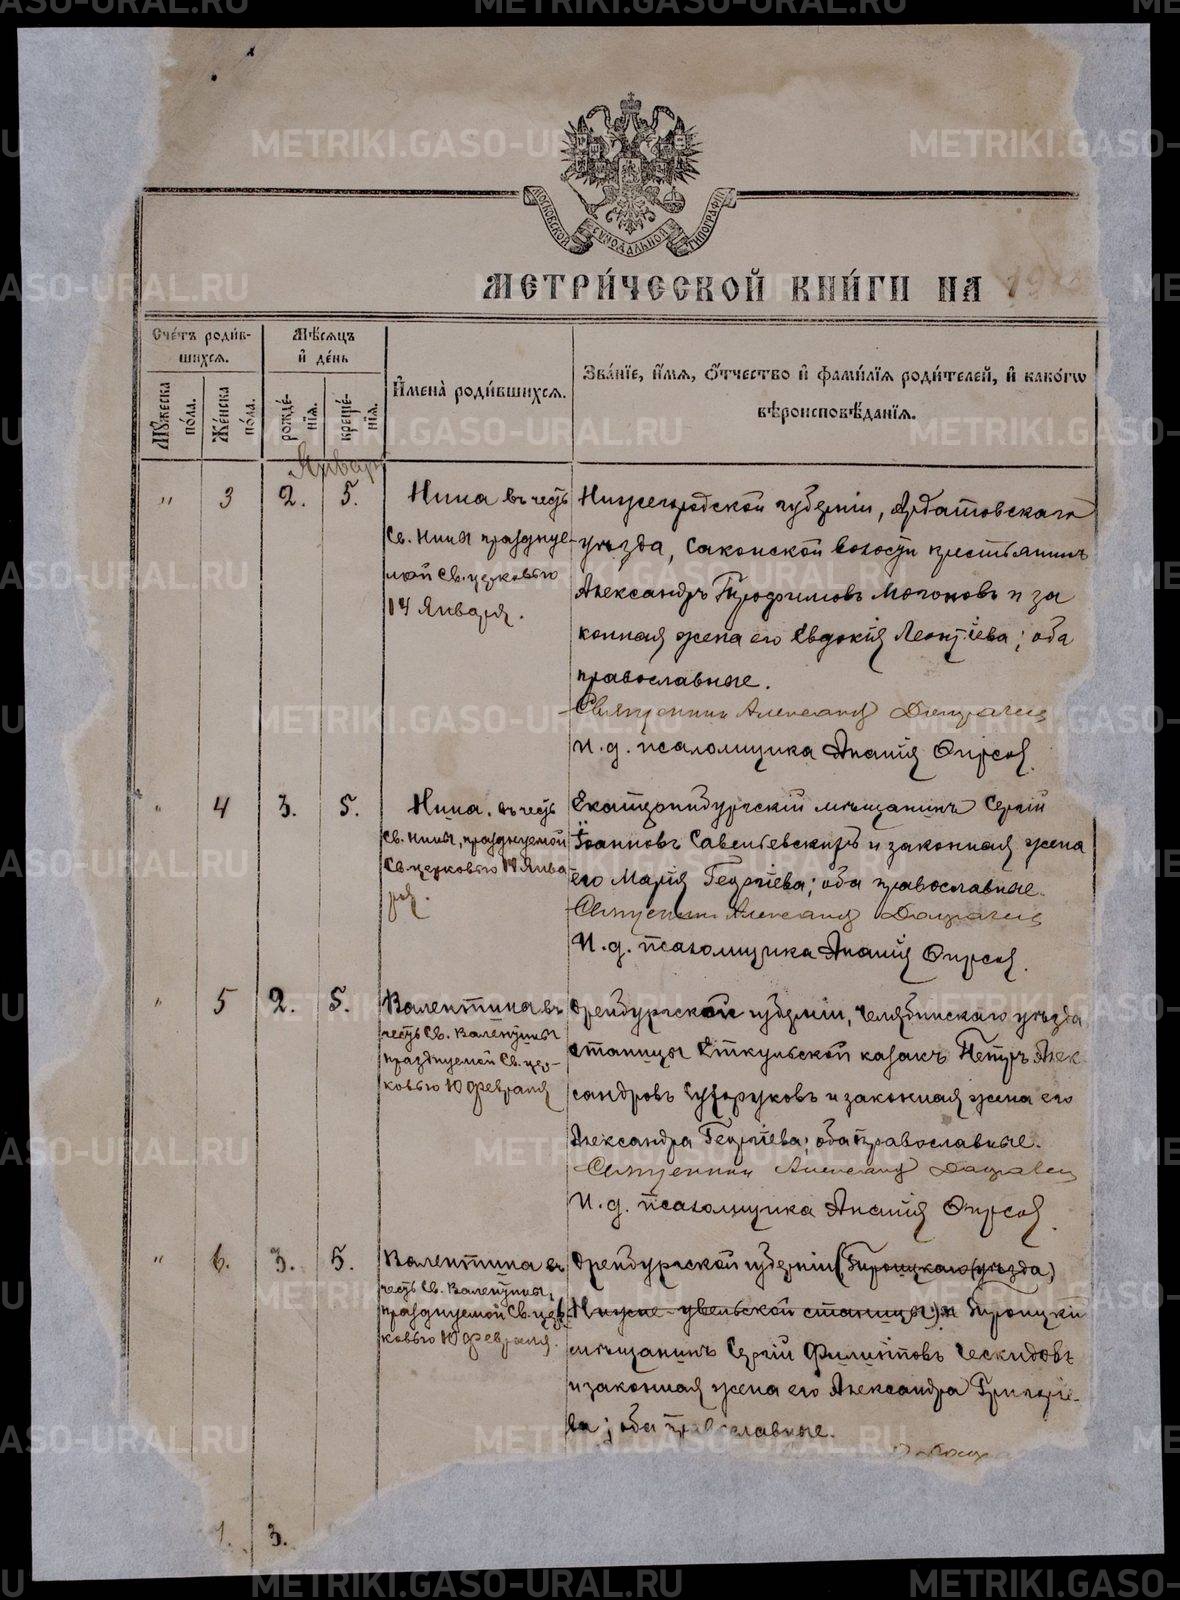 МОСКОВСКОЙ СѴНОДАЛЬНОЙ ТИПОГРАФІИ
МЕТРИ́ЧЕСКОЙ КНИ́ГИ НА
Сче́тъ роди́в-
шихсѧ.
Мѣ́сѧцъ
и҆ де́нь
И҆мена̀ роди́вшихсѧ.
Зва́нїе, и҆́мѧ, ѻ҆́тчество и҆ фами́лїѧ роди́телей, и҆ како́гѡ
вѣроисповѣ́данїѧ.
Мꙋ́жеска
по́ла.
Же́нска
по́ла.
рожде́-
нїѧ.
креще́-
нїѧ.
Январь
" 3 2. 5.
Нина въ честь
Св. Нины празднуе-
мой Св. церковью
14 Января.
Нижегородской губерніи, Ардатовскаго
уѣзда, Саконской волости крестьянинъ
Александръ Трофимовъ и за
конная жена его Евдокія Леонтіева; оба
православные.
Священникъ Александръ
И. д. псаломщика Ананія Фирсов
" 4 3. 5.
Нина, въ честь
Св. Нины, празднуемой
Св. церковью 14 Янва
ря.
Екатеринбургскій мѣщанинъ Сергій
Іоанновъ и законная жена
его Марія Георгіева; оба православные.
Священникъ Александръ
И. д. псаломщика Ананія Фирсов
" 5 2. 5.
Валентина въ
честь Св. Валентины
празднуемой Св. цер-
ковью 10 Февраля
Оренбургской губерніи, Челябинскаго уѣзда
станицы Еткульской казакъ Петръ Алек
сандровъ Сухоруковъ и законная жена его
Александра Георгіева; оба православные.
Священникъ Александръ
И. д. псаломщика Ананія Фирсов
" 6. 3. 5.
Валентина въ
честь Св. Валентины,
празднуемой Св. цер
ковью 10 Февраля.
Оренбургской губерніи (Троицкаго уѣзда)
Нижне-увельской станицы) Троицкій
мѣщанинъ Сергій Филипповъ Ческидовъ
и законная жена его Александра Григоріе-
ва; оба православные.
3.
METRIKI.GASO-URAL.RU